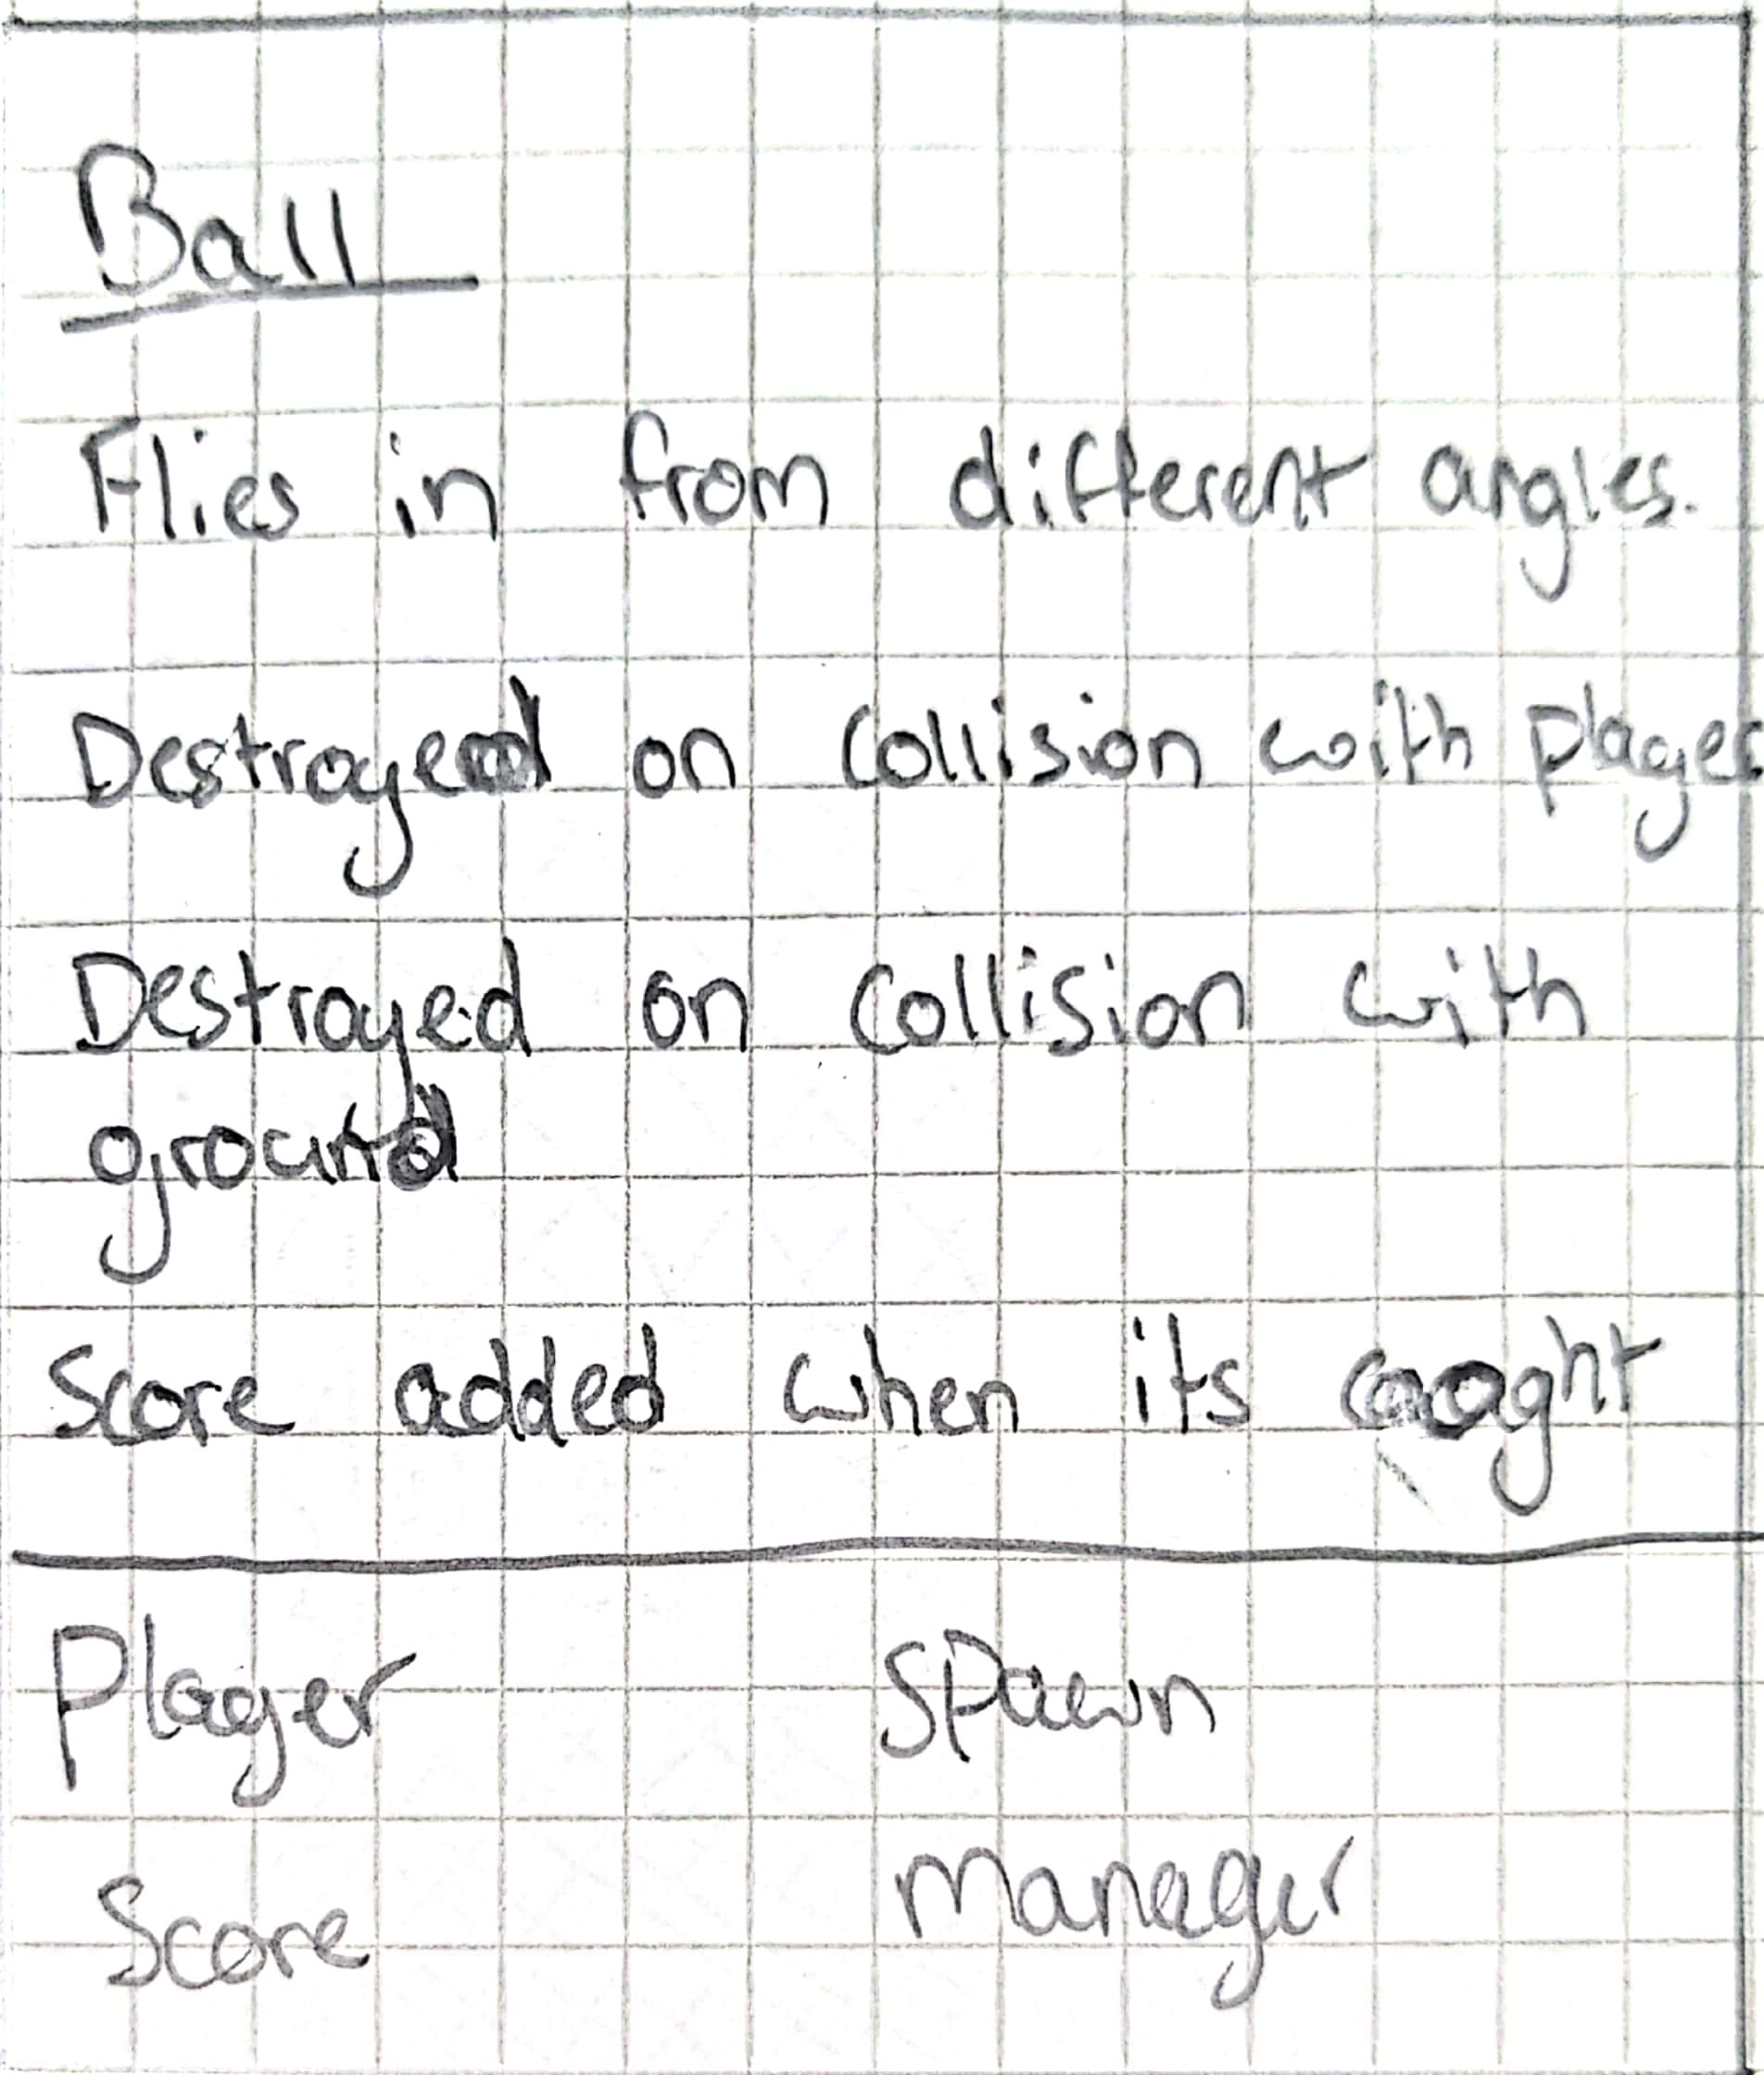 Ball
Flies in from different angles.
Destroyed on collision with player
Destroyed on collision with
ground
Score added when its caught
Player Spawn
Score Manager